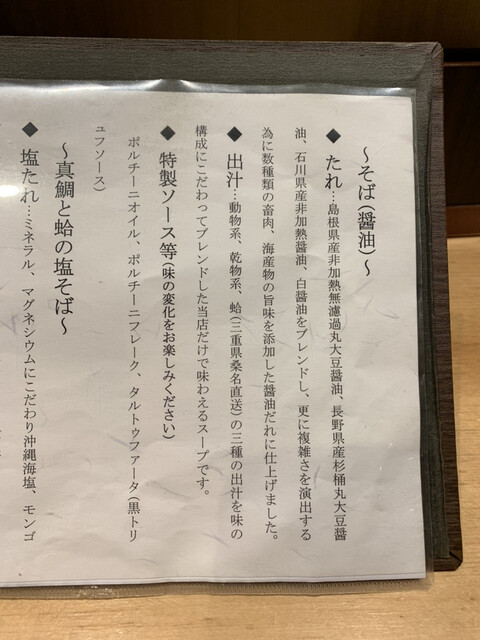 ～そば(醤油)～
◆ たれ…島根県産非加熱無濾過丸大豆醤油、長野県産杉桶丸大豆醤
油、石川県産非加熱醤油、白醤油をブレンドし、更に複雑さを演出する
為に数種類の畜肉、海産物の旨味を添加した醤油だれに仕上げました。
◆ 出汁…動物系、乾物系、蛤(三重県桑名直送)の三種の出汁を味の
構成にこだわってブレンドした当店だけで味わえるスープです。
◆ 特製ソース等(味の変化をお楽しみください)
ポルチーニオイル、ポルチーニフレーク、タルトゥファータ(黒トリ
ュフソース)
～真鯛と蛤の塩そば～
◆ 塩たれ…ミネラル、マグネシウムにこだわり沖縄海塩、モンゴ